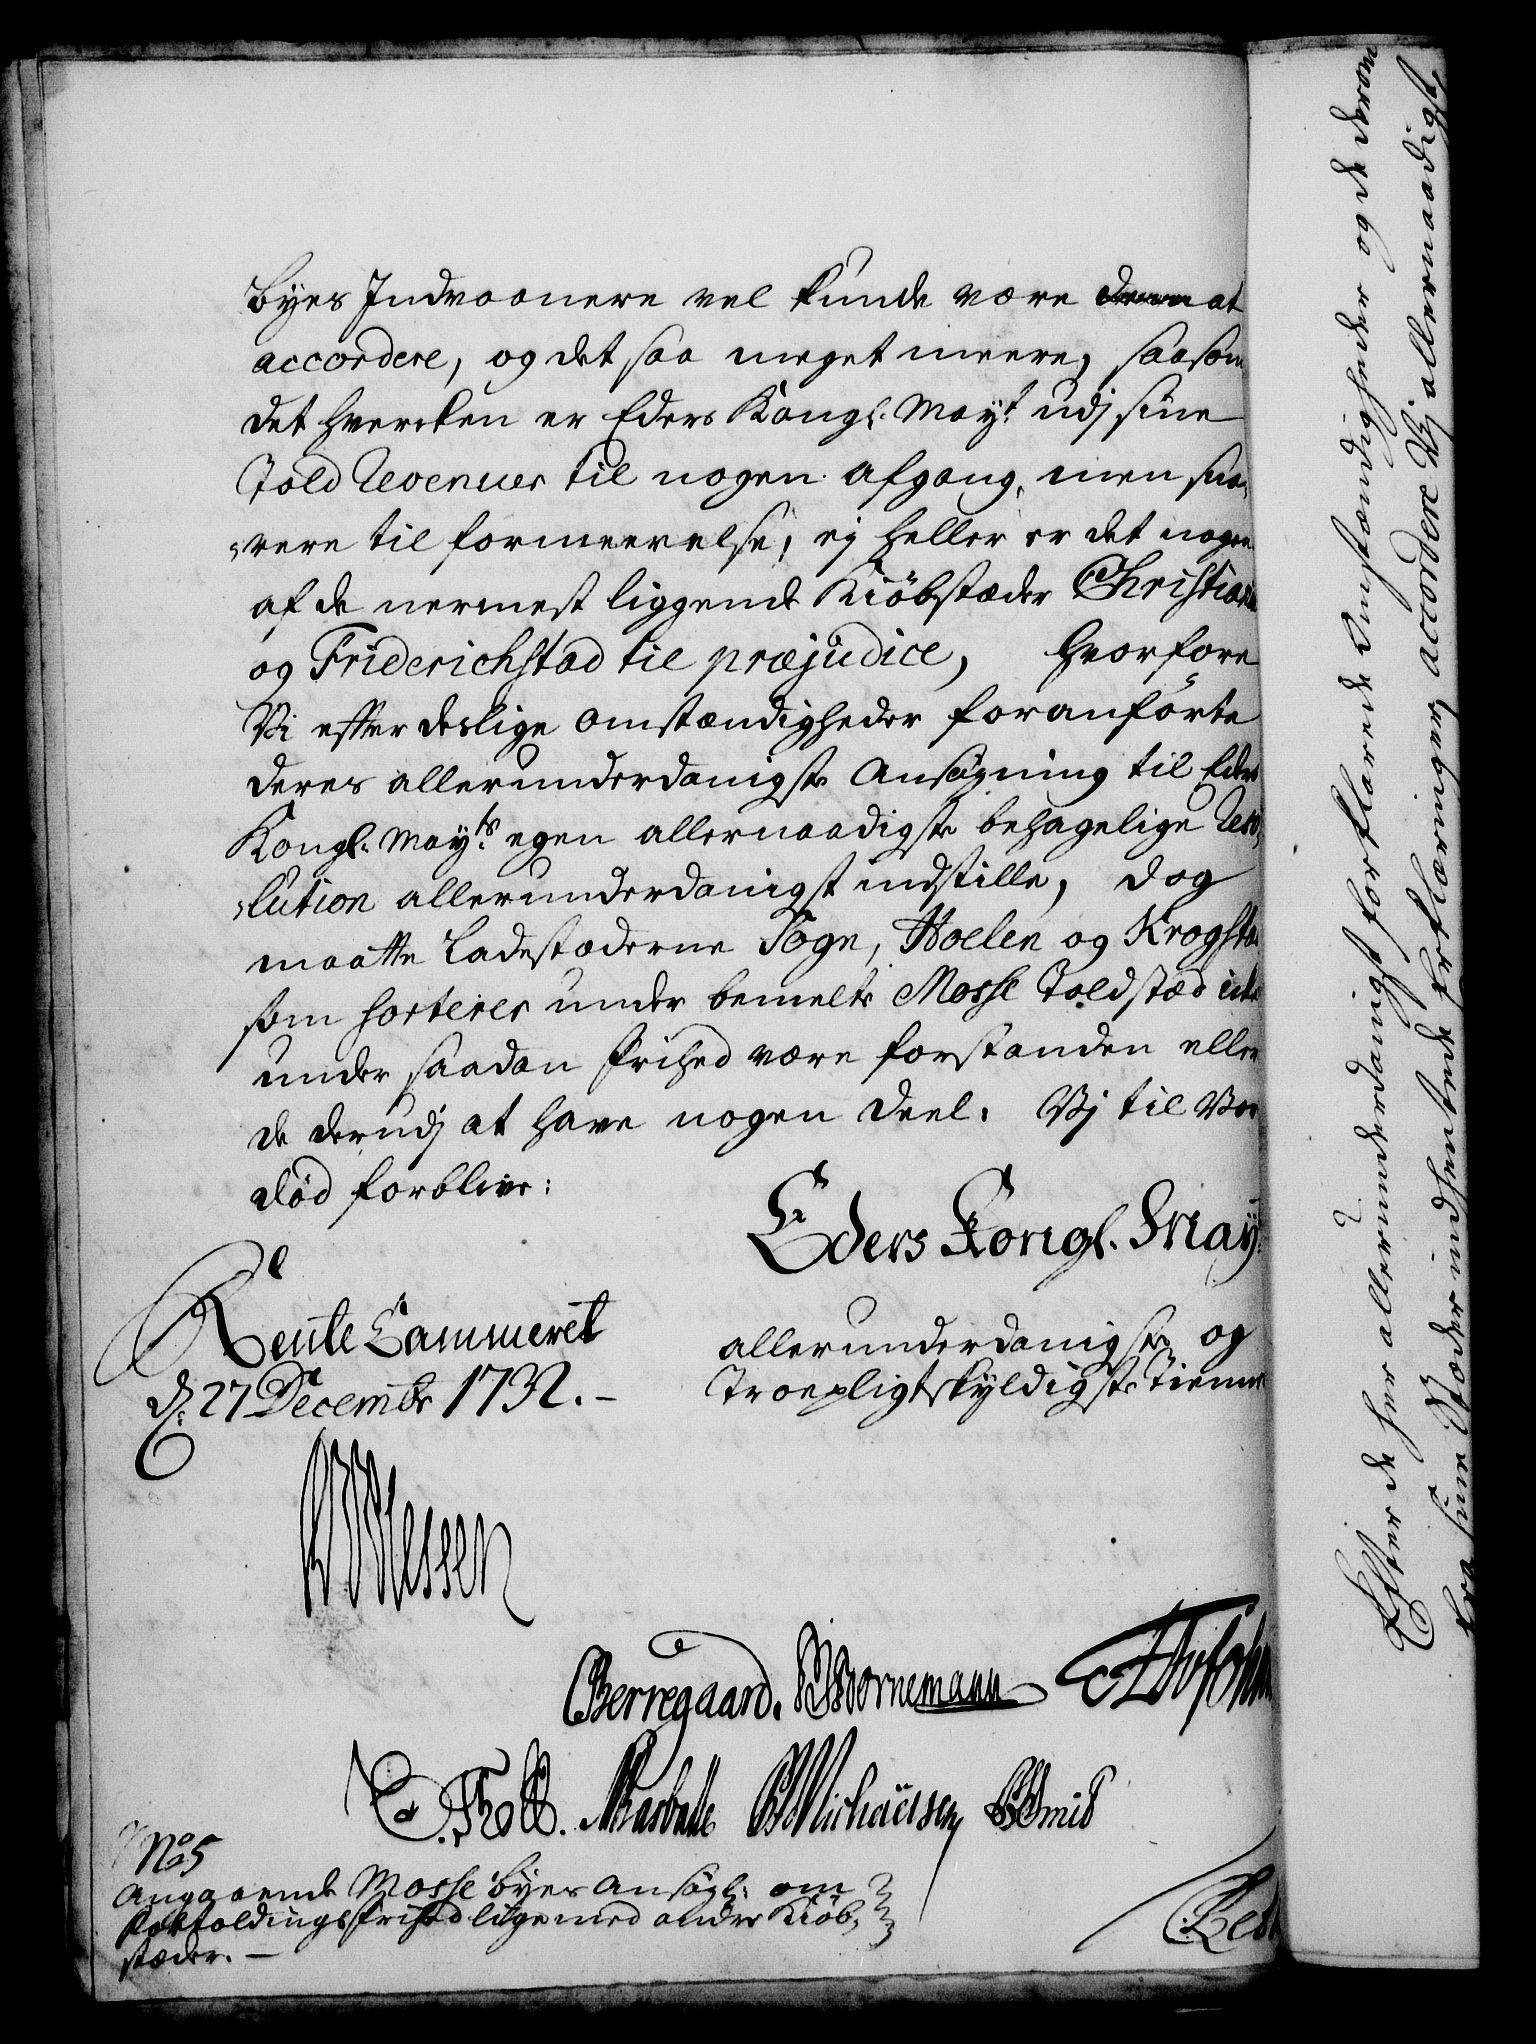 Byes Indvaanere vel kunde være at
accordere, og det saa meget meere, saasom
det hvercken er Eders Kongl. Mayt. udj sine
Told Revenuer til nogen afgang, men sna-
rere til formeerelse, ej heller er det nogen
af de nermest liggende Kiöbstæder Christiania
og Friderichstad til præjudice, hvorfore
Vi effter deslige omstændigheder foranförte
deres allerunderdanigste Ansögning til Eders
Kongl. Mayts. egen allernaadigste behagelige Reso-
lution allerunderdanigst indstille, dog
maatte Ladestæderne Sogn, Hoelen og Krogstad
som sorterer under bemelte Mosse Toldstæd icke
under saadan frihed være forstanden eller
de derudj at have nogen Deel. Vj til Vor
död forblive:
Eders Kongl. May:
Rente Cammeret
d: 27 Decembr 1732.
allerunderdanigste og
Troepligtskyldigste Tienere
Plessen
Berregaard. Bornemann
C. Tholl. Michaelsen Smid
No 5
Angaaende Mosse Byes Ansögl: om
frihed lige med andre Kiöb-
stæder.
Efter de her allerunderdanigst forklarede Omstændigheder og de derom
fra sine Stæder indhentede Erklæringer, accordere Vj allernaadigst,